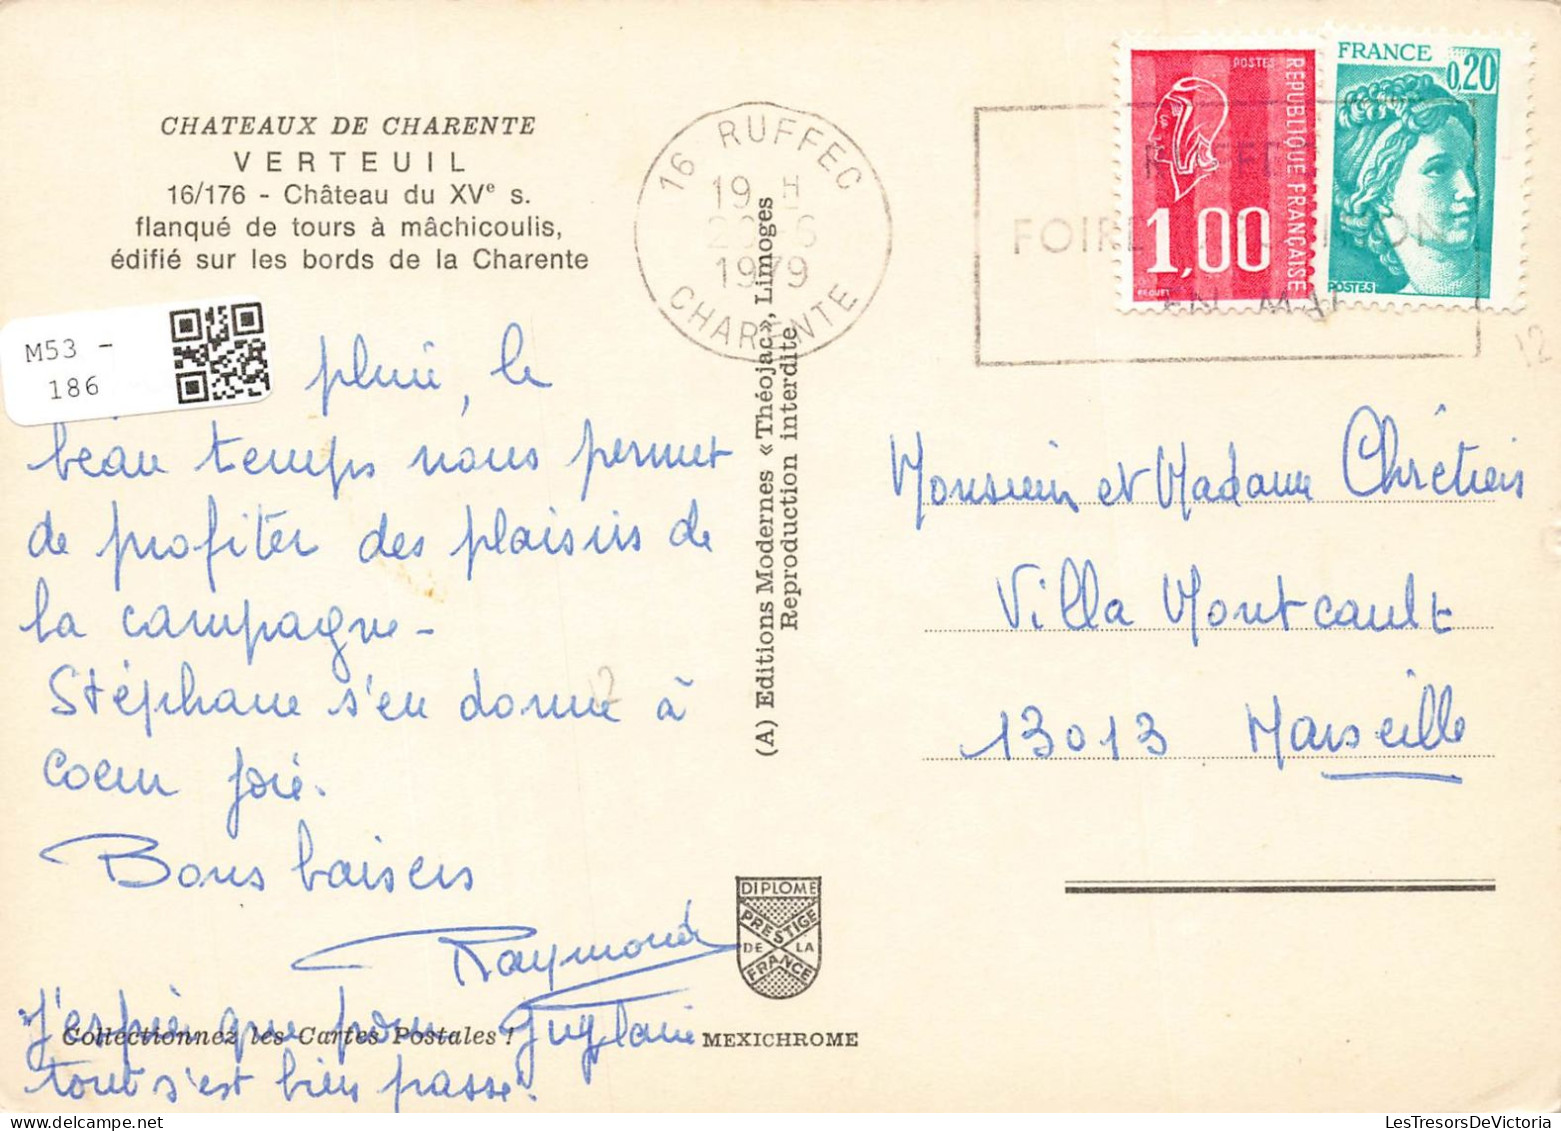 CHATEAUX DE CHARENTE
VERTEUIL
16/176 - Château du XVe s.
flanqué de tours à mâchicoulis,
édifié sur les bords de la Charente
M53 -
186
pluie, le
beau temps nous permet
de profiter des plaisirs de
la campagne -
Stéphane s'en donne à
coeur joie.
Bons baisers
Raymonde
J'espère que pour Guylaine
tout s'est bien passé.
Collectionnez les Cartes Postales !
(A) Editions Modernes « Théojac », Limoges
Reproduction interdite
DIPLOME
PRESTIGE
DE LA
FRANCE
MEXICHROME
16 RUFFEC
19 H
6
1979
CHARENTE
FOIRE
EN MAI
POSTES
REPUBLIQUE FRANÇAISE
1,00
FRANCE
0,20
POSTES
12
12
Monsieur et Madame Chrétien
Villa Montcault
13013 Marseille
LesTresorsDeVictoria